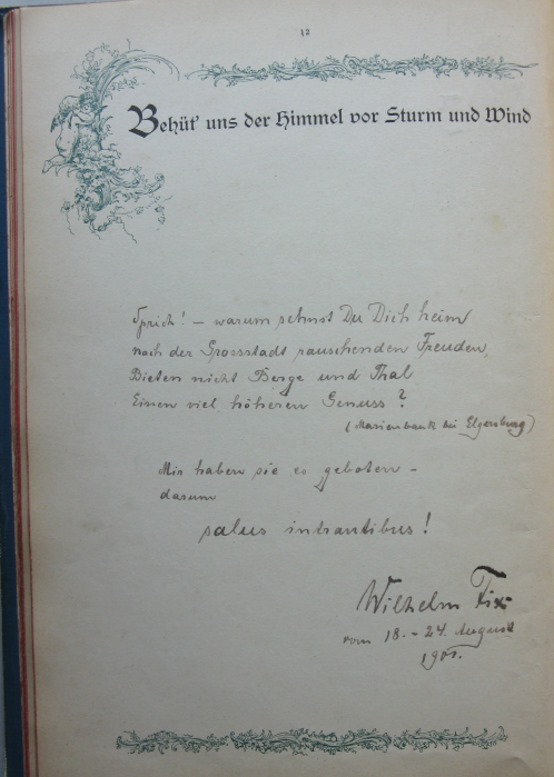 12
Behüt' uns der Himmel vor Sturm und Wind
Sprich! – warum sehnst Du Dich heim
nach der Grossstadt rauschenden Freuden,
Bieten nicht Berge und Thal
Einen viel höheren Genuss?
(Marienbank bei Elgersburg)
Mir haben sie es geboten –
darum
salus intrantibus!
Wilhelm
vom 18. – 24. August